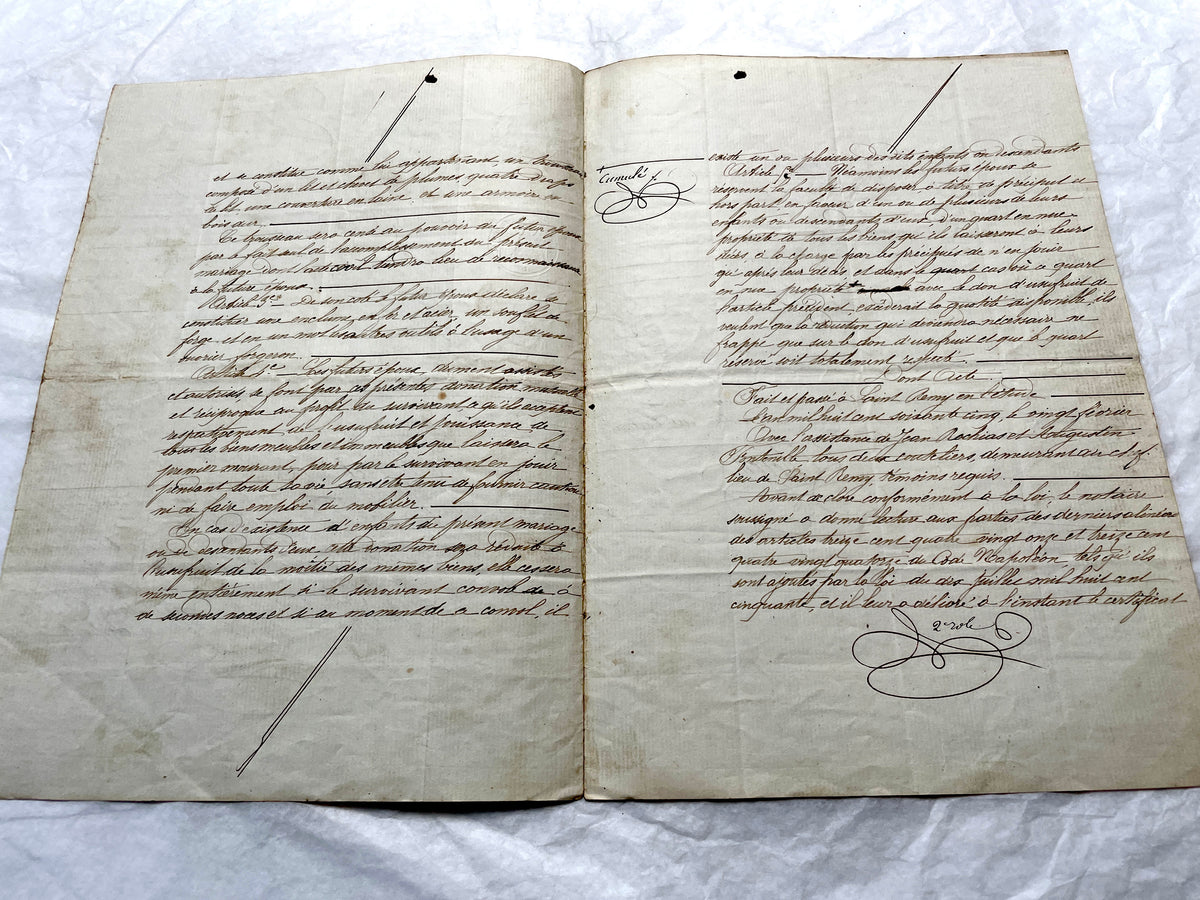 et se constitue comme lui appartenant, un trousseau
composé d'un lit et chevet de plumes, quatre draps
de lit, une couverture en laine, et une armoire en
bois dur.
Ce trousseau sera censé au pouvoir du futur époux
par le fait seul de l'accomplissement du présent
mariage dont l'acte civil tiendra lieu de reconnaissance
à la future épouse.
Article 3e De son côté le futur époux déclare se
constituer une enclume, en fer et acier, un soufflet de
forge et en un mot les autres outils à l'usage d'un
ouvrier forgeron.
Article 4e Les futurs époux, dûment assistés
et autorisés, se font par ces présentes, donation mutuelle
et réciproque au profit du survivant, ce qu'ils acceptent
respectivement de l'usufruit et jouissance de
tous les biens meubles et immeubles que laissera le
premier mourant, pour par le survivant en jouir
pendant toute sa vie sans être tenu de fournir caution
ni de faire emploi du mobilier.
En cas d'existence d'enfants du présent mariage
ou de descendants d'eux cette donation sera réduite à
l'usufruit de la moitié des mêmes biens, elle cessera
même entièrement si le survivant convole à
de secondes noces et si au moment de ce convol, il
+
Cumulé
existe un ou plusieurs desdits enfants ou descendants
Article 5e Néamoins les futurs époux se
réservent la faculté de disposer à titre de préciput et
hors part, en faveur d'un ou de plusieurs de leurs
enfants ou descendants d'eux d'un quart en nue
propriété de tous les biens qu'ils laisseront à leurs
décès, à la charge par les précipués de n'en jouir
qu'après leur décès et dans le cas où ce quart
en nue propriété + avec le don d'usufruit de
l'article précédent, excèderait la quotité disponible, ils
veulent que la réduction qui deviendra nécessaire ne
frappe que sur le don d'usufruit et que le quart
réservé soit totalement respecté.
Dont Acte
Fait et passé à Saint Remy en l'étude
L'an mil huit cent soixante cinq, le vingt février
Avec l'assistance de Jean Rochias et Augustin
tous deux couteliers, demeurant au chef
lieu de Saint Remy témoins requis.
Avant de clore conformément à la loi, le notaire
soussigné a donné lecture aux parties des derniers alinéa
des articles treize cent quatre vingt onze et treize cent
quatre vingt quatorze du Code Napoléon tels qu'ils
sont ajoutés par la loi du dix juillet mil huit cent
cinquante, et il leur a délivré à l'instant le certificat
2e rôle